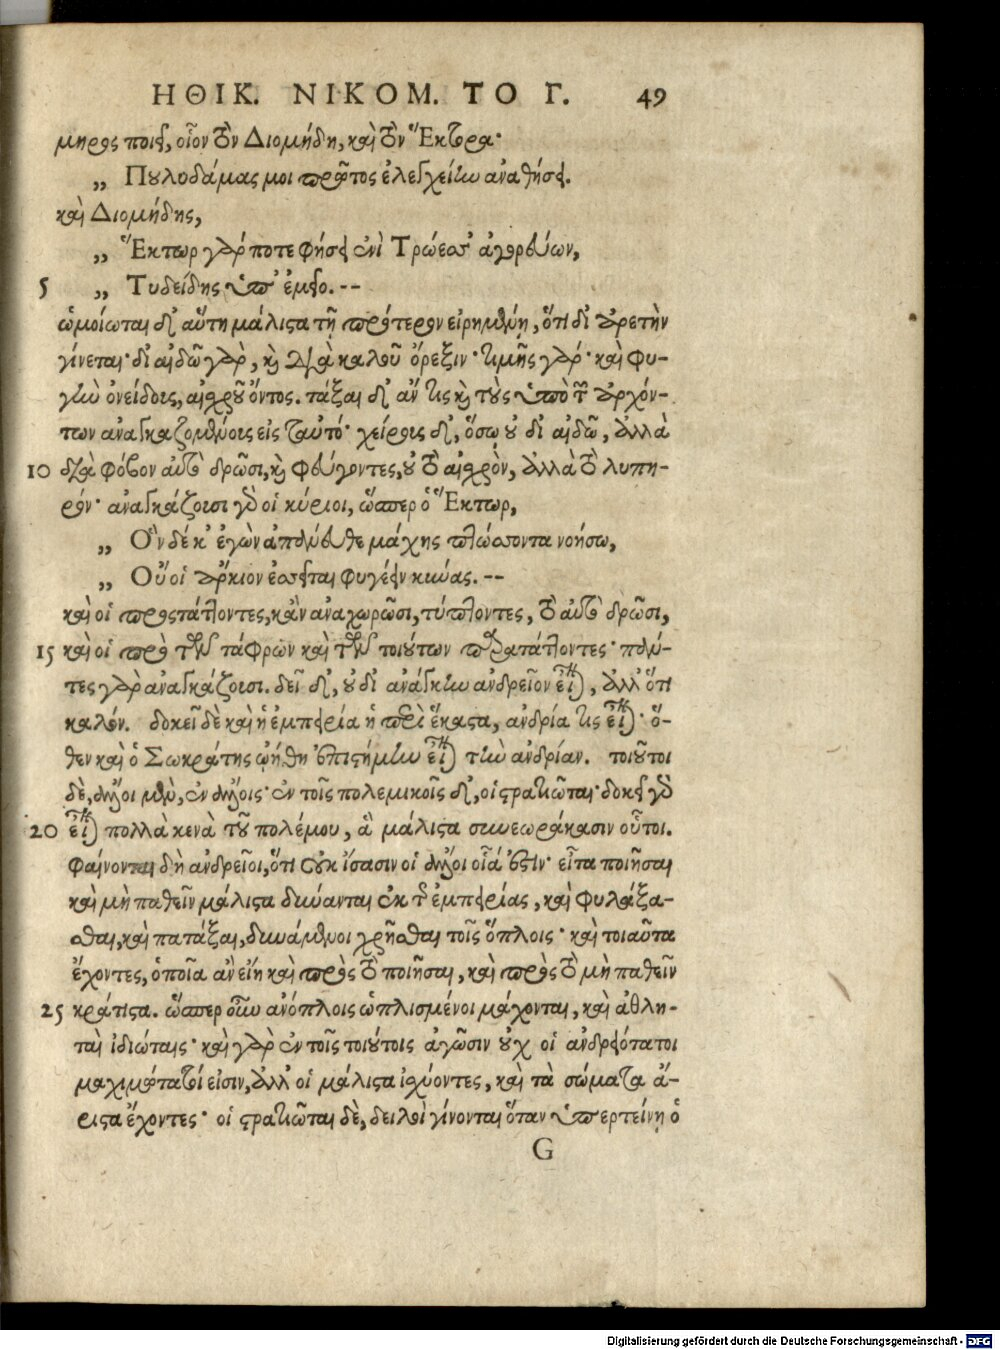 ΗΘΙΚ. ΝΙΚΟΜ. ΤΟ Γ. 49
μηρος ποιεῖ, οἷον τὸν Διομήδη, καὶ τὸν Ἕκτορα·
„ Πουλυδάμας μοι πρῶτος ἐλεγχείην ἀναθήσει.
καὶ Διομήδης,
„ Ἕκτωρ γάρ ποτε φήσει ἐνὶ Τρώεσσ' ἀγορεύων,
5 „ Τυδείδης ὑπ' ἐμεῖο. --
ὡμοίωται δ' αὕτη μάλιστα τῇ πρότερον εἰρημένῃ, ὅτι δι' ἀρετὴν
γίνεται· δι' αἰδῶ γὰρ, καὶ διὰ καλοῦ ὄρεξιν· τιμῆς γάρ· καὶ φυ-
γὴν ὀνείδους, αἰσχροῦ ὄντος. τάξαι δ' ἄν τις καὶ τοὺς ὑπὸ τῶν ἀρχόν-
των ἀναγκαζομένους εἰς ταυτό· χείρους δ', ὅσῳ οὐ δι' αἰδῶ, ἀλλὰ
10 διὰ φόβον αὐτὸ δρῶσι, καὶ φεύγοντες, οὐ τὸ αἰσχρὸν, ἀλλὰ τὸ λυπη-
ρόν· ἀναγκάζουσι γὰρ οἱ κύριοι, ὥσπερ ὁ Ἕκτωρ,
„ Ὃν δέ κ' ἐγὼν ἀπάνευθε μάχης πτώσσοντα νοήσω,
„ Οὔ οἱ ἄρκιον ἐσσεῖται φυγέειν κύνας. --
καὶ οἱ προστάττοντες, κἂν ἀναχωρῶσι, τύπτοντες, τὸ αὐτὸ δρῶσι,
15 καὶ οἱ πρὸ τῶν τάφρων καὶ τῶν τοιούτων παρατάττοντες· πάν-
τες γὰρ ἀναγκάζουσι. δεῖ δ', οὐ δι' ἀνάγκην ἀνδρεῖον εἶναι, ἀλλ' ὅτι
καλόν. δοκεῖ δὲ καὶ ἡ ἐμπειρία ἡ περὶ ἕκαστα, ἀνδρία τις εἶναι· ὅ-
θεν καὶ ὁ Σωκράτης ᾠήθη ἐπιστήμην εἶναι τὴν ἀνδρίαν. τοιοῦτοι
δὲ, ἄλλοι μὲν, ἐν ἄλλοις· ἐν τοῖς πολεμικοῖς δ', οἱ στρατιῶται· δοκεῖ γὰρ
20 εἶναι πολλὰ κενὰ τοῦ πολέμου, ἃ μάλιστα συνεωράκασιν οὗτοι.
φαίνονται δὴ ἀνδρεῖοι, ὅτι οὐκ ἴσασιν οἱ ἄλλοι οἷά ἐστιν· εἶτα ποιῆσαι
καὶ μὴ παθεῖν μάλιστα δύνανται ἐκ τῆς ἐμπειρίας, καὶ φυλάξα-
σθαι, καὶ πατάξαι, δυνάμενοι χρῆσθαι τοῖς ὅπλοις· καὶ τοιαῦτα
ἔχοντες, ὁποῖα ἂν εἴη καὶ πρὸς τὸ ποιῆσαι, καὶ πρὸς τὸ μὴ παθεῖν
25 κράτιστα. ὥσπερ οὖν ἀνόπλοις ὡπλισμένοι μάχονται, καὶ ἀθλη-
ταὶ ἰδιώταις· καὶ γὰρ ἐν τοῖς τοιούτοις ἀγῶσιν οὐχ οἱ ἀνδρειότατοι
μαχιμώτατοί εἰσιν, ἀλλ' οἱ μάλιστα ἰσχύοντες, καὶ τὰ σώματα ἄ-
ριστα ἔχοντες· οἱ στρατιῶται δὲ, δειλοὶ γίνονται ὅταν ὑπερτείνῃ ὁ
G
Digitalisierung gefördert durch die Deutsche Forschungsgemeinschaft - DFG